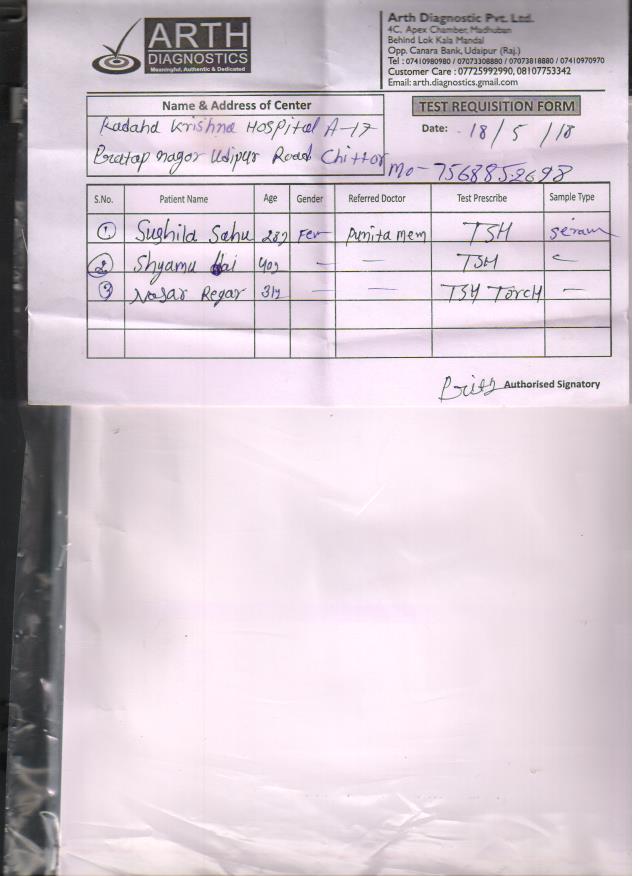 ARTH
DIAGNOSTICS
Meaningful, Authentic & Dedicated
Arth Diagnostic Pvt. Ltd.
4C, Apex Chamber, Madhuban
Behind Lok Kala Mandal
Opp. Canara Bank, Udaipur (Raj.)
Tel : 07410980980 / 07073308880 / 07073818880 / 07410970970
Customer Care : 07725992990, 08107753342
Email: arth.diagnostics.gmail.com
Name & Address of Center
TEST REQUISITION FORM
Radaha Krishna Hospital A-17
Date: 18/5/18
Pratap nagar Udipur Road Chittor
Mo- 7568852698
S.No. Patient Name Age Gender Referred Doctor Test Prescribe Sample Type
1 Sushila Sahu 28y Fem Punita mem TSH Seram
2 Shyamu 40y — — TSH —
3 Nosar Regar 31y — — TSH Torch —
Authorised Signatory